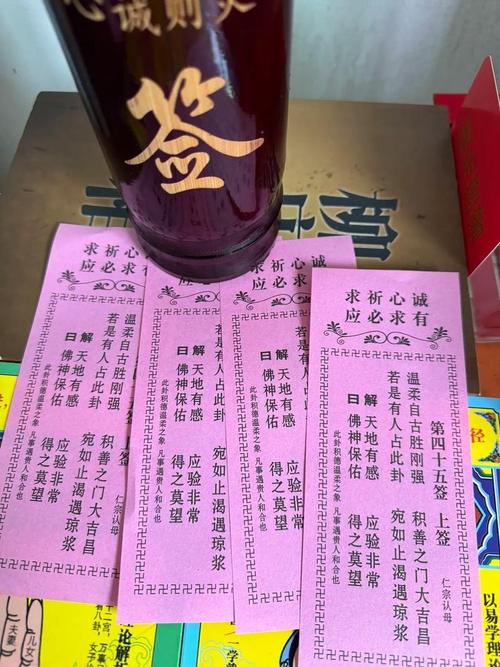 心诚则
签
柳
诚心祈求
有求必应
第四十五签 上签 仁宗认母
温柔自古胜刚强 积善之门大吉昌
若是有人占此卦 宛如止渴遇琼浆
解 天地有感 应验非常
曰 佛神保佑 得之莫望
此卦积德温柔之象 凡事遇贵人和合也
诚心祈求
求必应
若是有
宛如止渴遇
解 天地有感 应验非常
曰 佛神保佑 得之莫望
此卦积德温柔之象 凡事遇贵人和合也
祈求
必应
若是有
宛如止渴遇琼浆
解 天地有感 应验非常
曰 佛神保佑 得之莫望
此卦积德温柔之象 凡事遇贵人和合也
心祈求
求必应
上签 仁宗认母
温柔自古胜刚强 积善之门大吉昌
若是有人占此卦 宛如止渴遇琼浆
解 天地有感 应验非常
曰 佛神保佑 得之莫望
此卦积德温柔之象 凡事遇贵人和合也
径
以易学理
论解析
十二宫，万事
有八卦
儿女
夫妻